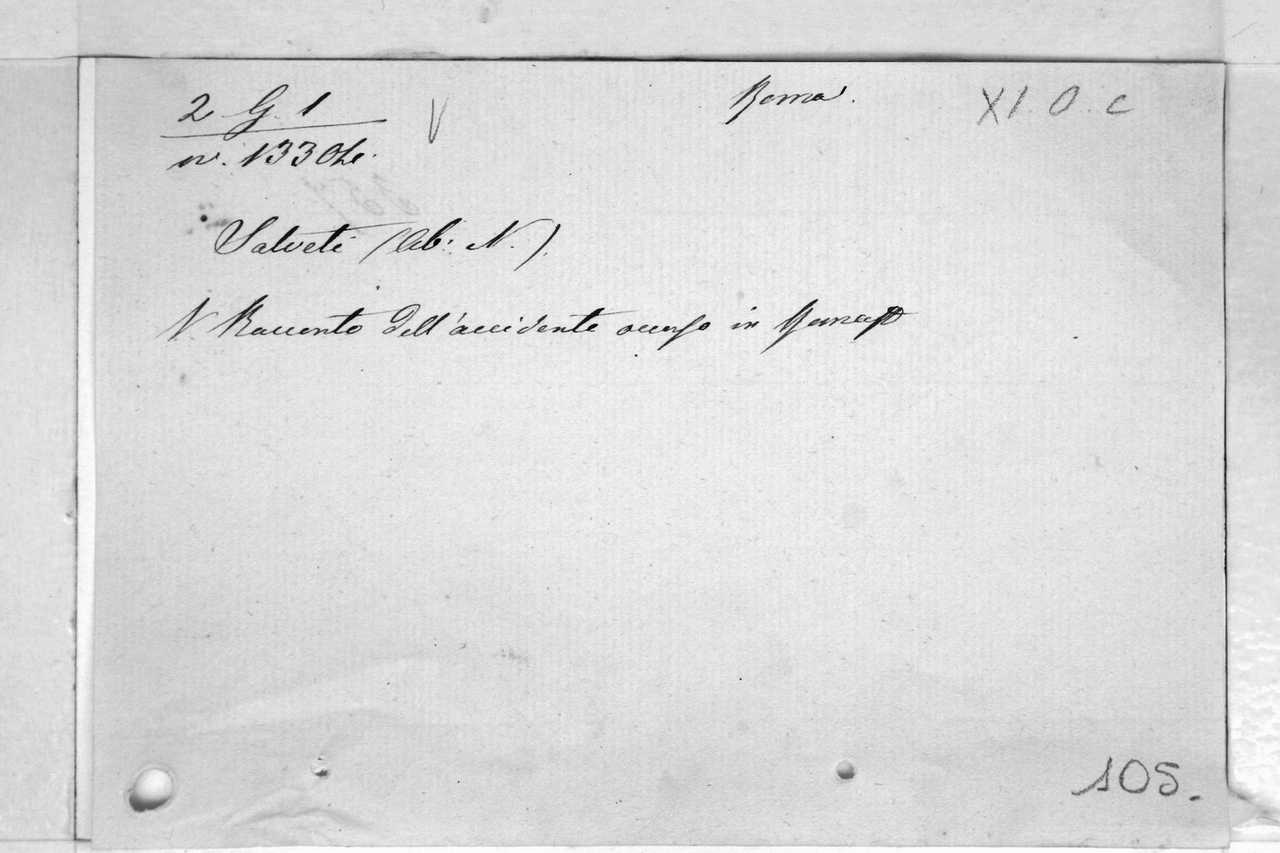 2 G. 1
Roma.
XI. O. c
V
n. 1330
Salveti (Ab: N.)
V. Racconto dell'accidente occorso in
105.